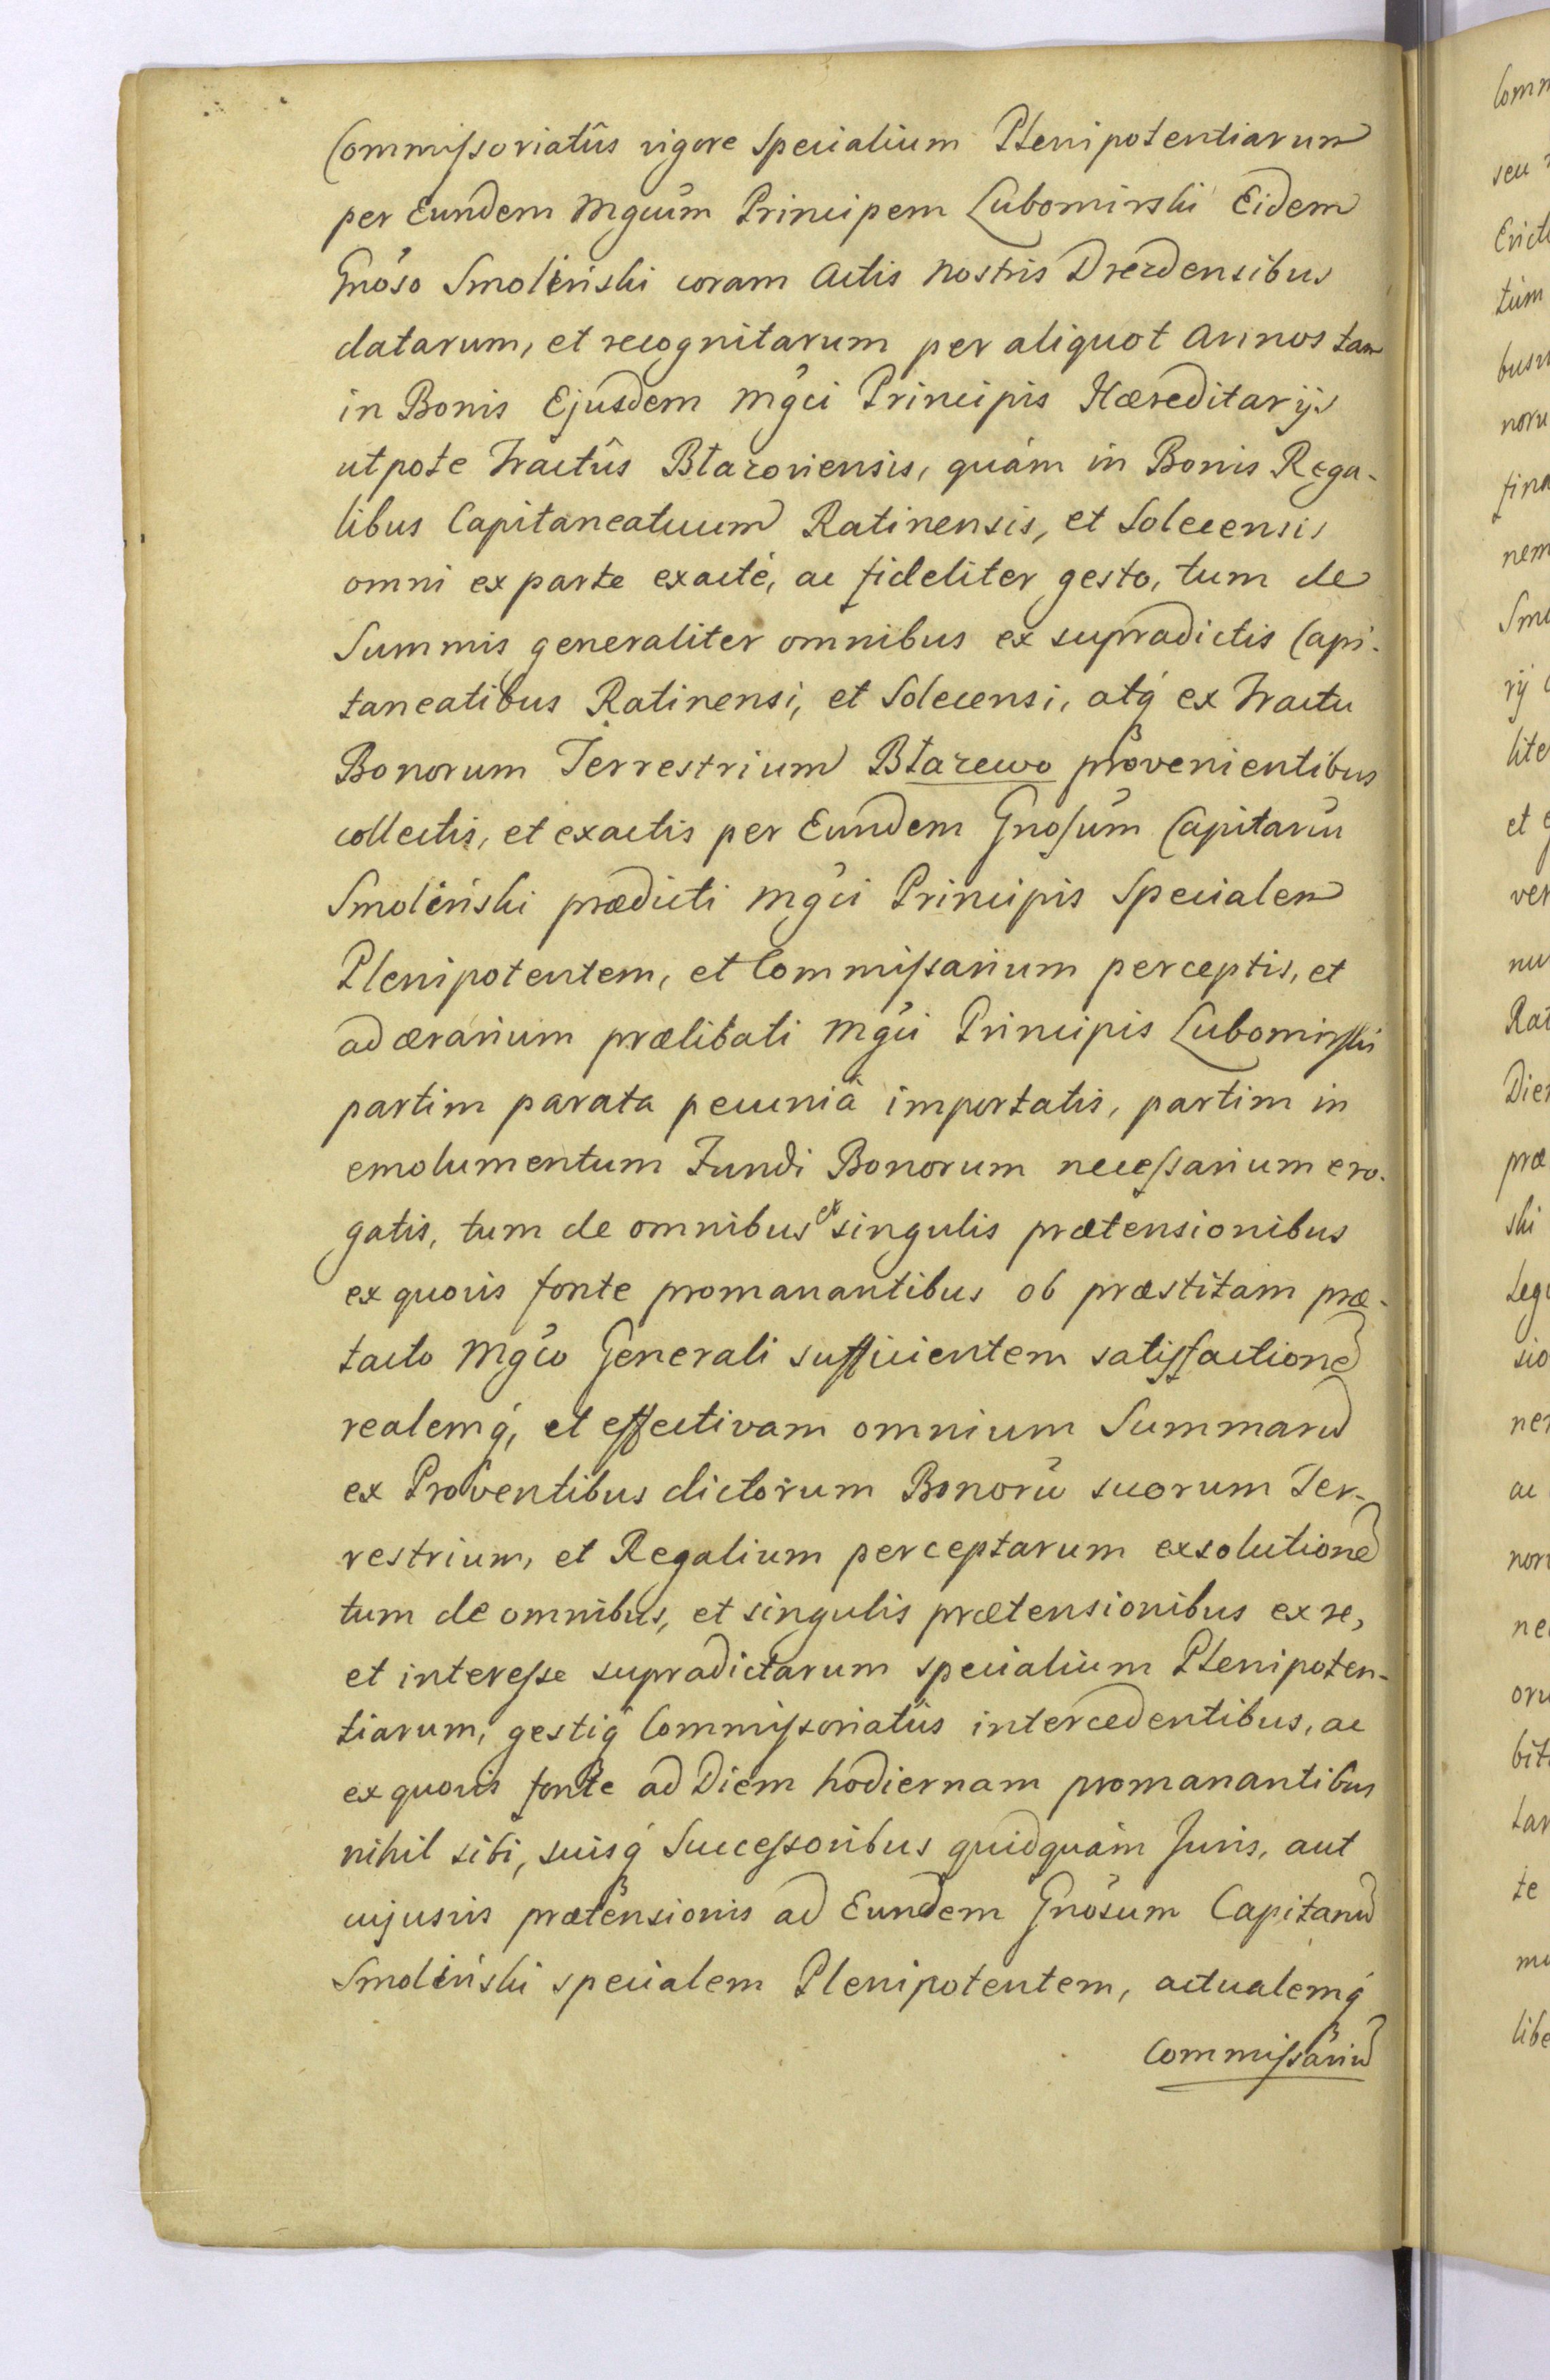 Commissoriatûs vigore specialium Plenipotentiarum
per Eundem Mgcum Principem Lubomirski Eidem
Gnoso Smolinski coram Actis nostris Drezdensibus
datarum, et recognitarum per aliquot annos tam
in Bonis Ejusdem Mgci Principis Hæreditarijs
utpote Tractûs Błazoviensis, quám in Bonis Rega-
libus Capitaneatuum Ratinensis, et Solecensis
omni ex parte exacté, ac fideliter gesto, tum de
Summis generaliter omnibus ex supradictis Capi-
taneatibus Ratinensi, et Solecensi, atq́ ex Tractu
Bonorum Terrestrium Błazewo provenientibus
collectis, et exactis per Eundem Gnosum Capitanū
Smoliński prædicti Mgci Principis Specialem
Plenipotentem, et Commissarium perceptis, et
ad ærarium prælibati Mgci Principis Lubomirski
partim parata pecuniâ importatis, partim in
emolumentum Fundi Bonorum necessarium ero-
gatis, tum de omnibus et singulis prætensionibus
ex quovis fonte promanantibus ob præstitam præ-
tacto Mgco Generali sufficientem satisfactionē
realemq́, et effectivam omnium Summarū
ex Proventibus dictorum Bonorū suorum Ter-
restrium, et Regalium perceptarum exsolutionē
tum de omnibus, et singulis prætensionibus ex re,
et interesse supradictarum specialium Plenipoten-
tiarum, gestiq́ Commissoriatûs intercedentibus, ac
ex quovis fonte ad Diem hodiernam promanantibus
nihil sibi, suisq́ Successoribus quidquám Juris, aut
cujusvis prætensionis ad Eundem Gnosum Capitanū
Smoliński specialem Plenipotentem, actualemq́
Commissariū